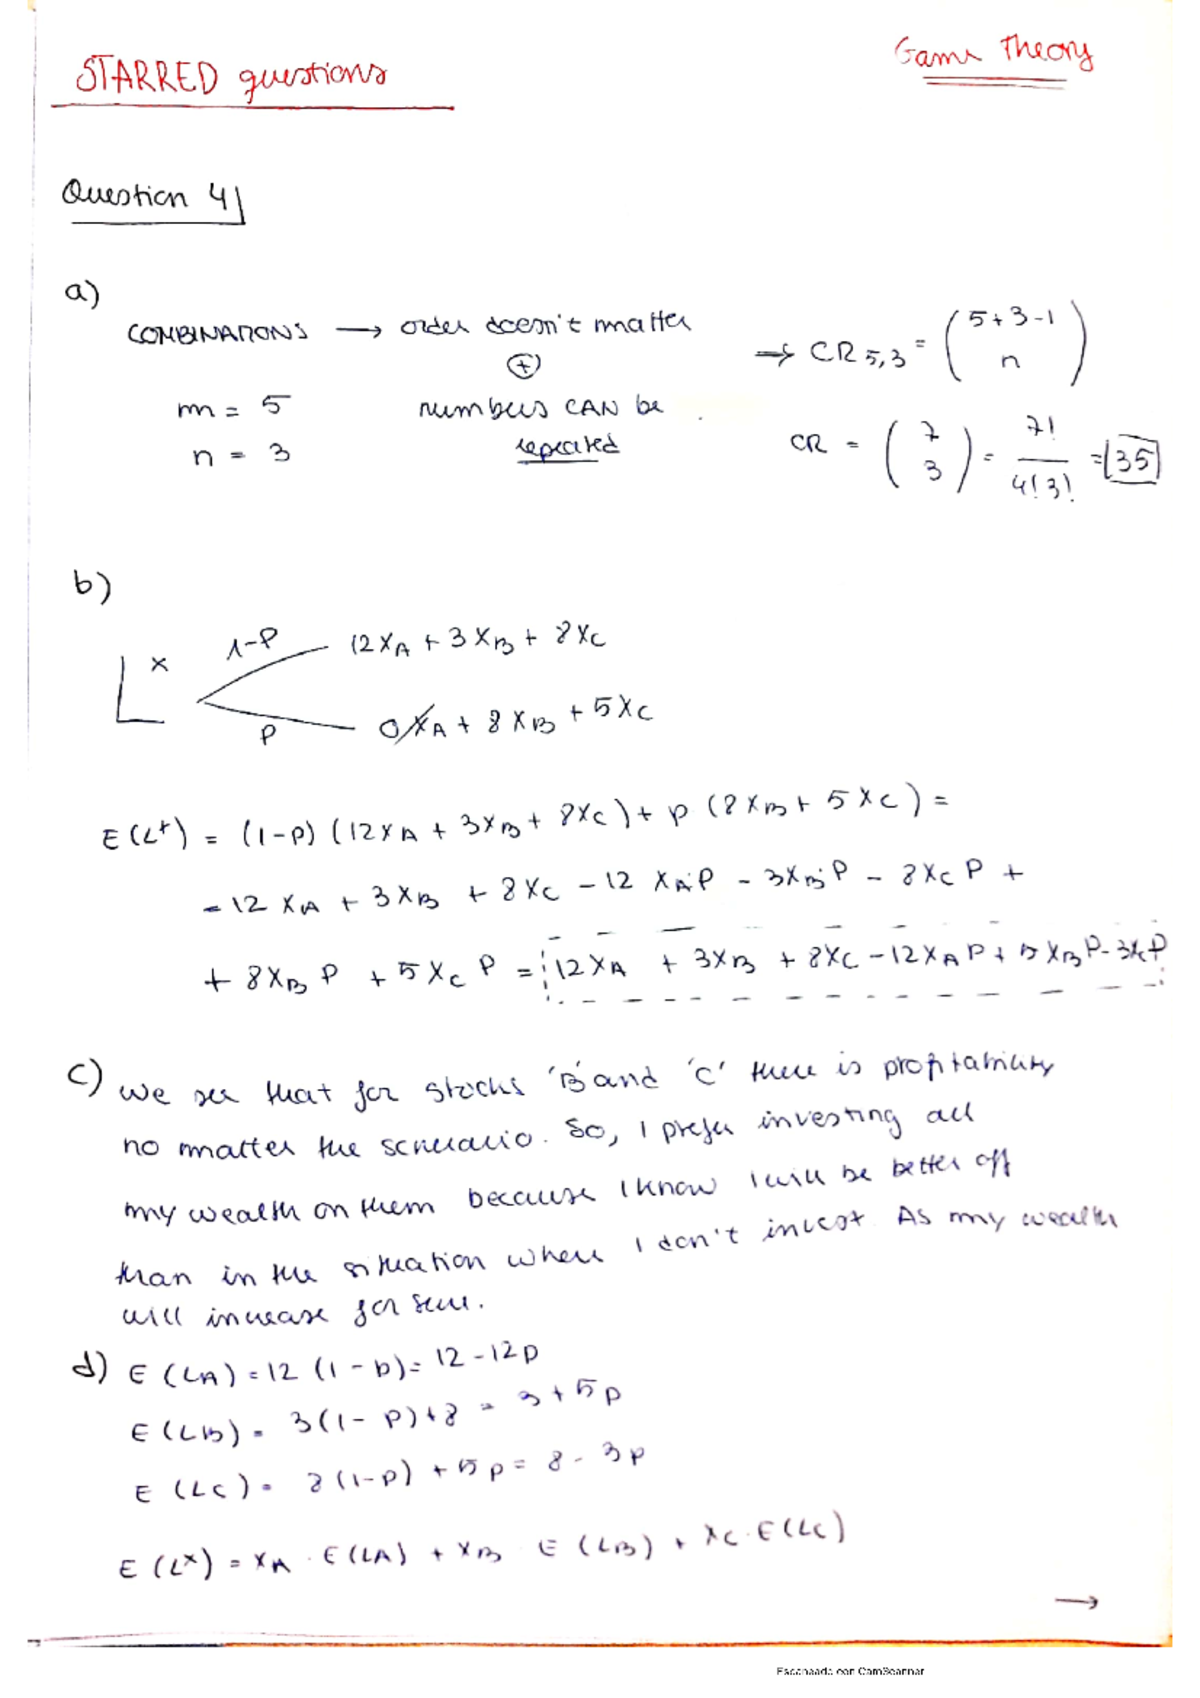 STARRED questions
Game Theory
Question 4
a)
COMBINATIONS → order doesn't matter
⊕
numbers CAN be
repeated
m = 5
n = 3
→ CR 5,3 = (5+3-1 n)
CR = (7 3) = 7! / 4!3! = 35
b)
L x
1-P 12XA + 3XB + 8XC
P 0XA + 8XB + 5XC
E(Lx) = (1-P)(12XA + 3XB + 8XC) + P (8XB + 5XC) =
= 12XA + 3XB + 8XC - 12 XA·P - 3XB·P - 8XC P +
+ 8XB P + 5XC P = 12XA + 3XB + 8XC - 12XA P + 5XB P - 3XC P
c) We see that for stocks 'B' and 'C' there is profitability
no matter the scenario. So, I prefer investing all
my wealth on them because I know I will be better off
than in the situation where I don't invest. As my wealth
will increase for sure.
d) E(LA) = 12(1-p) = 12-12p
E(LB) = 3(1-p)+8 = 3+5p
E(LC) = 8(1-p) + 5p = 8-3p
E(Lx) = XA · E(LA) + XB · E(LB) + XC · E(LC)
→
Escaneado con CamScanner